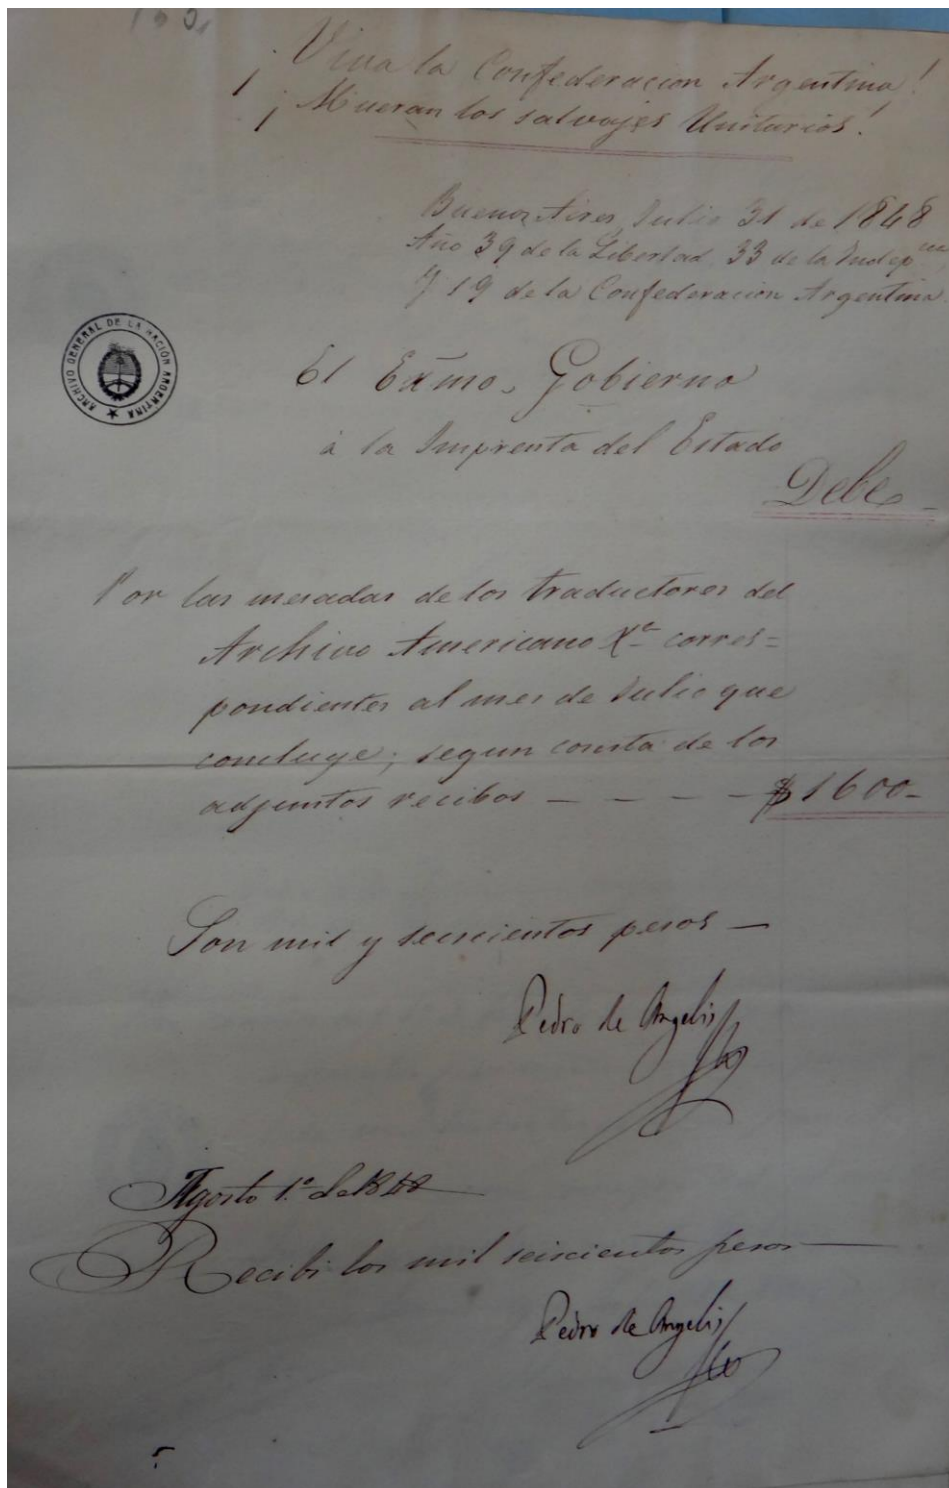 ¡Viva la Confederacion Argentina!
¡Mueran los salvajes Unitarios!
Buenos Aires, Julio 31 de 1848
Año 39 de la Libertad, 33 de la Indep.cia
y 19 de la Confederacion Argentina
ARCHIVO GENERAL DE LA NACIÓN ARGENTINA
El Exmo. Gobierno
á la Imprenta del Estado
Debe
Por las mesadas de los traductores del
Archivo Americano &.a corres=
pondientes al mes de Julio que
concluye; segun consta de los
adjuntos recibos - - - - - $ 1600-
Son mil y seiscientos pesos —
Pedro de Angelis
Agosto 1.º de 1848
Recibí los mil seiscientos pesos
Pedro de Angelis